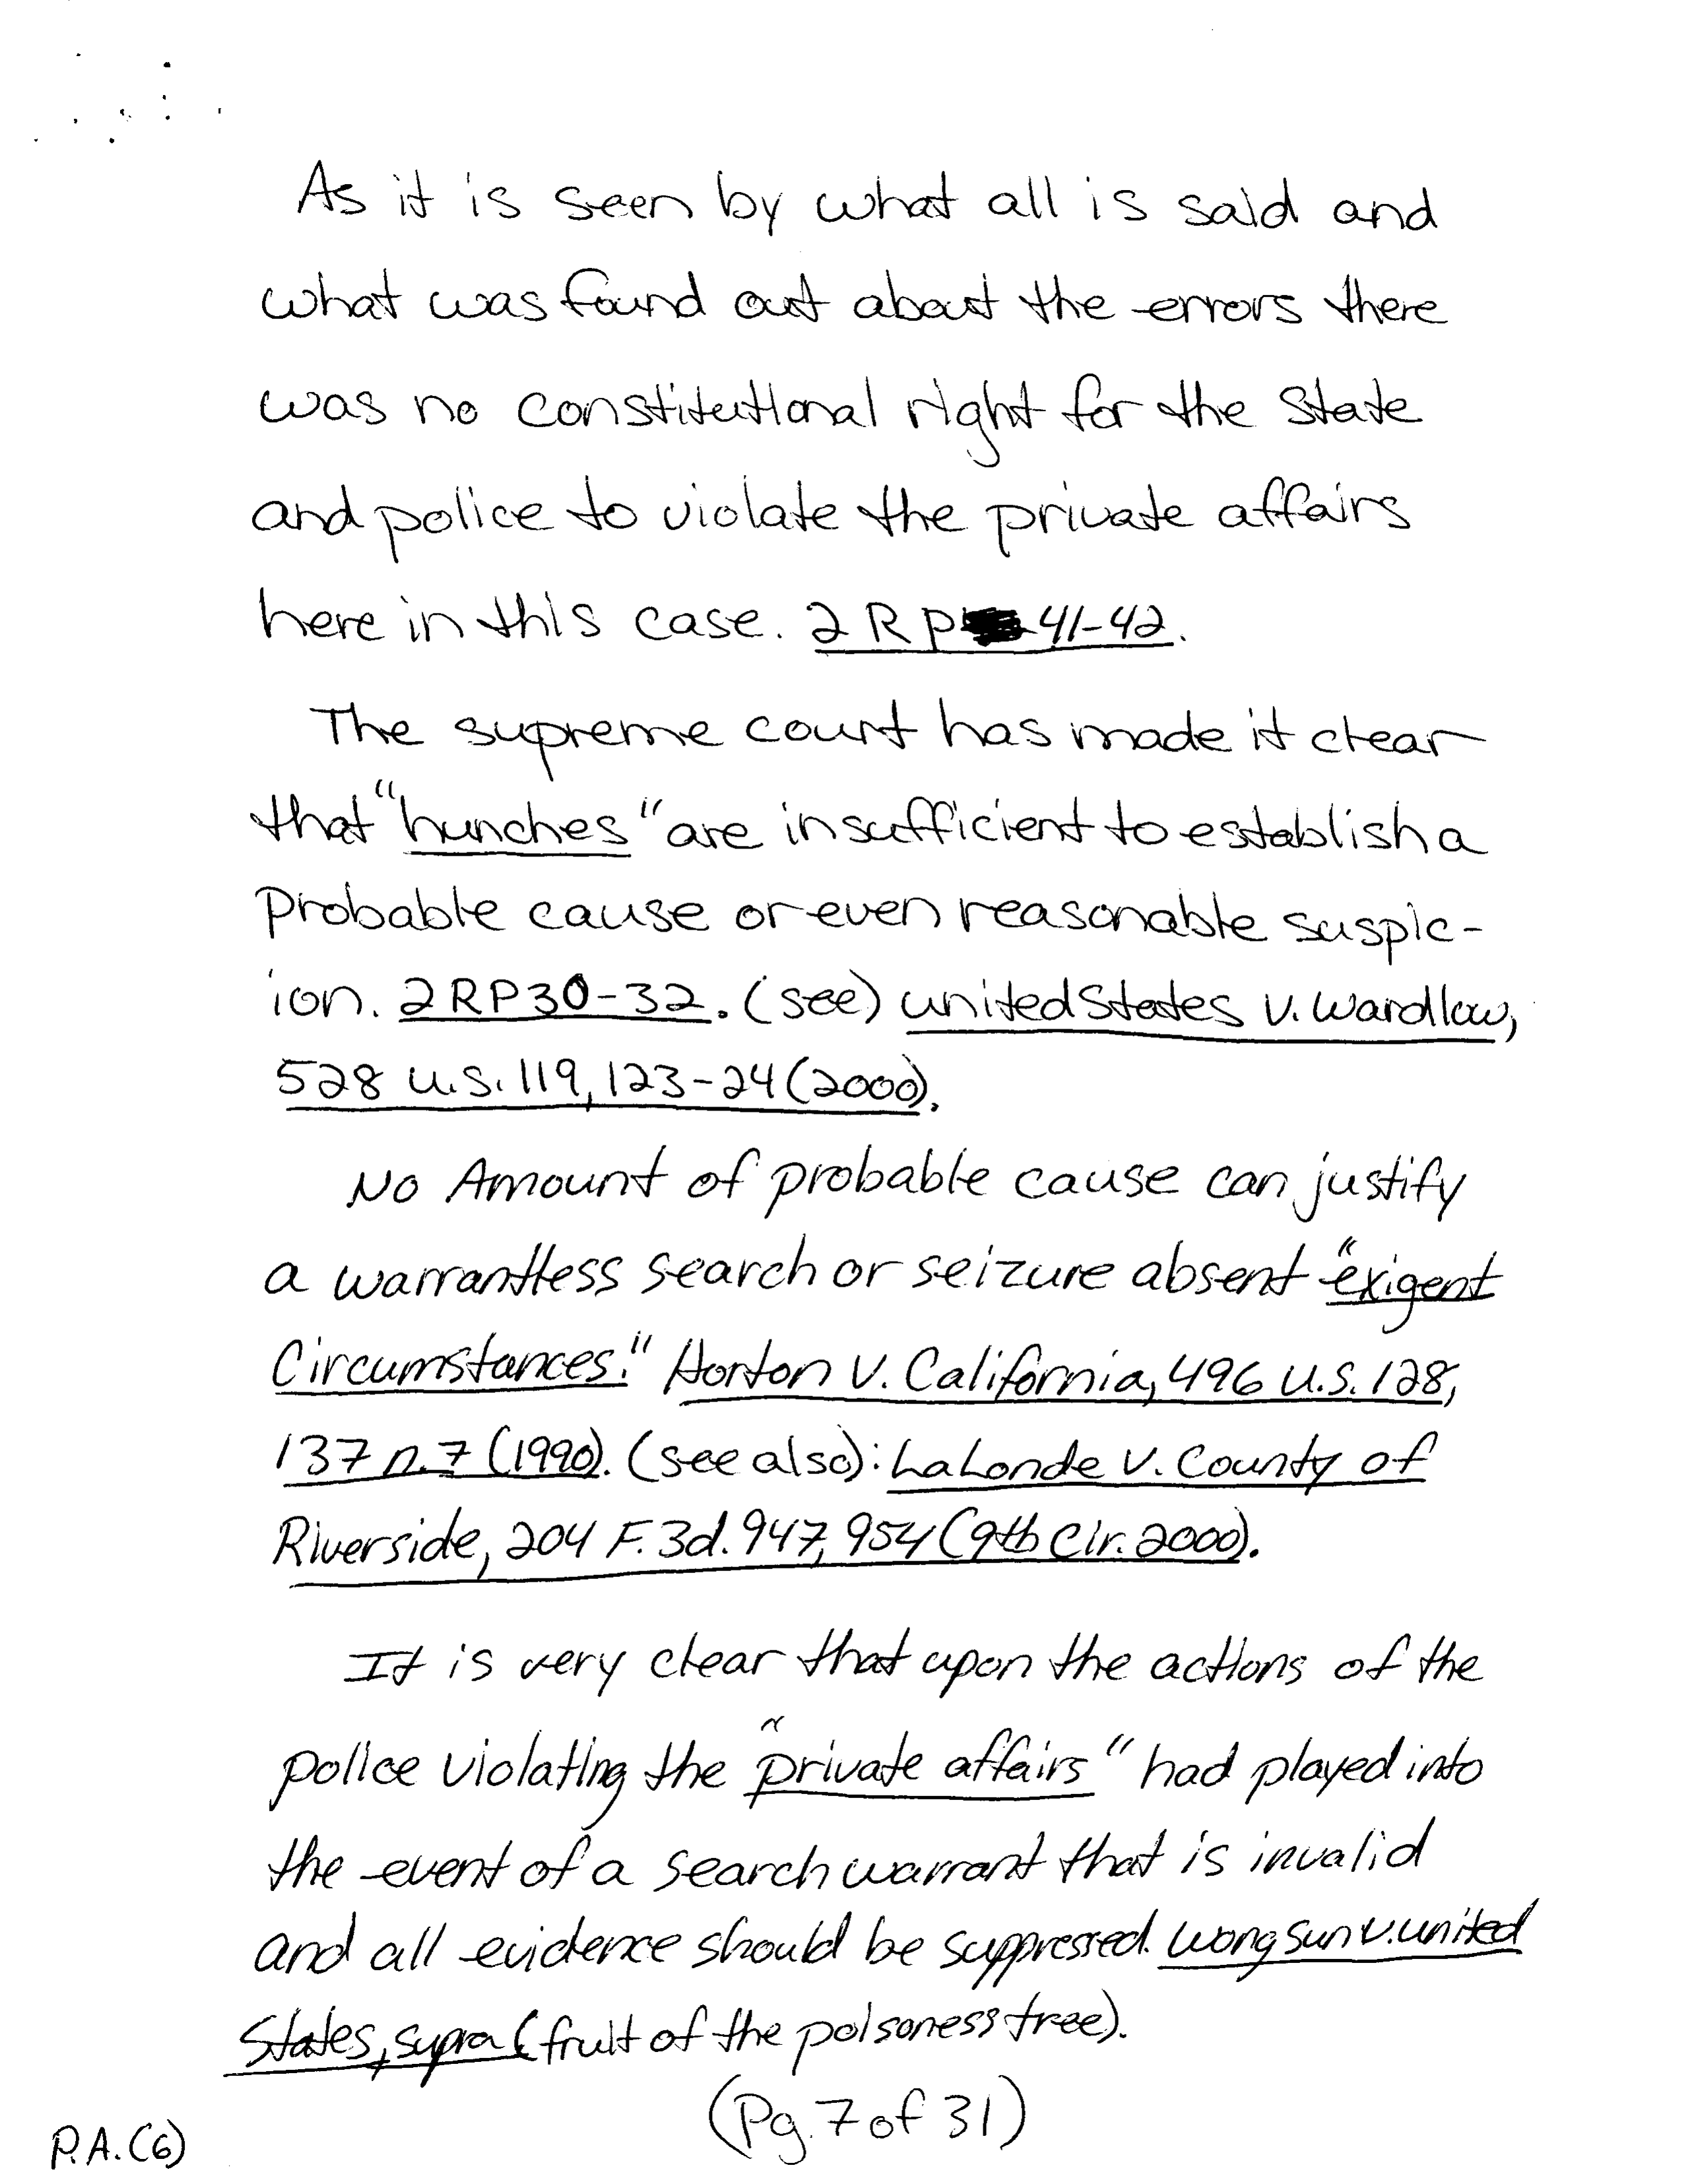 As it is seen by what all is said and
what was found out about the errors there
was no constitutional right for the State
and police to violate the private affairs
here in this case. 2RP 41-42.
The supreme court has made it clear
that "hunches" are insufficient to establish a
Probable cause or even reasonable suspic-
ion. 2RP30-32. (see) united States v. Wardlow,
528 U.S. 119, 123-24 (2000).
No Amount of probable cause can justify
a warrantless search or seizure absent "exigent
Circumstances." Horton v. California, 496 U.S. 128,
137 n.7 (1990). (see also): LaLonde v. County of
Riverside, 204 F.3d. 947, 954 (9th Cir. 2000).
It is very clear that upon the actions of the
police violating the "private affairs" had played into
the event of a search warrant that is invalid
and all evidence should be suppressed. Wong Sun v. united
States, supra (fruit of the poisoness tree).
(Pg. 7 of 31)
P.A.(6)